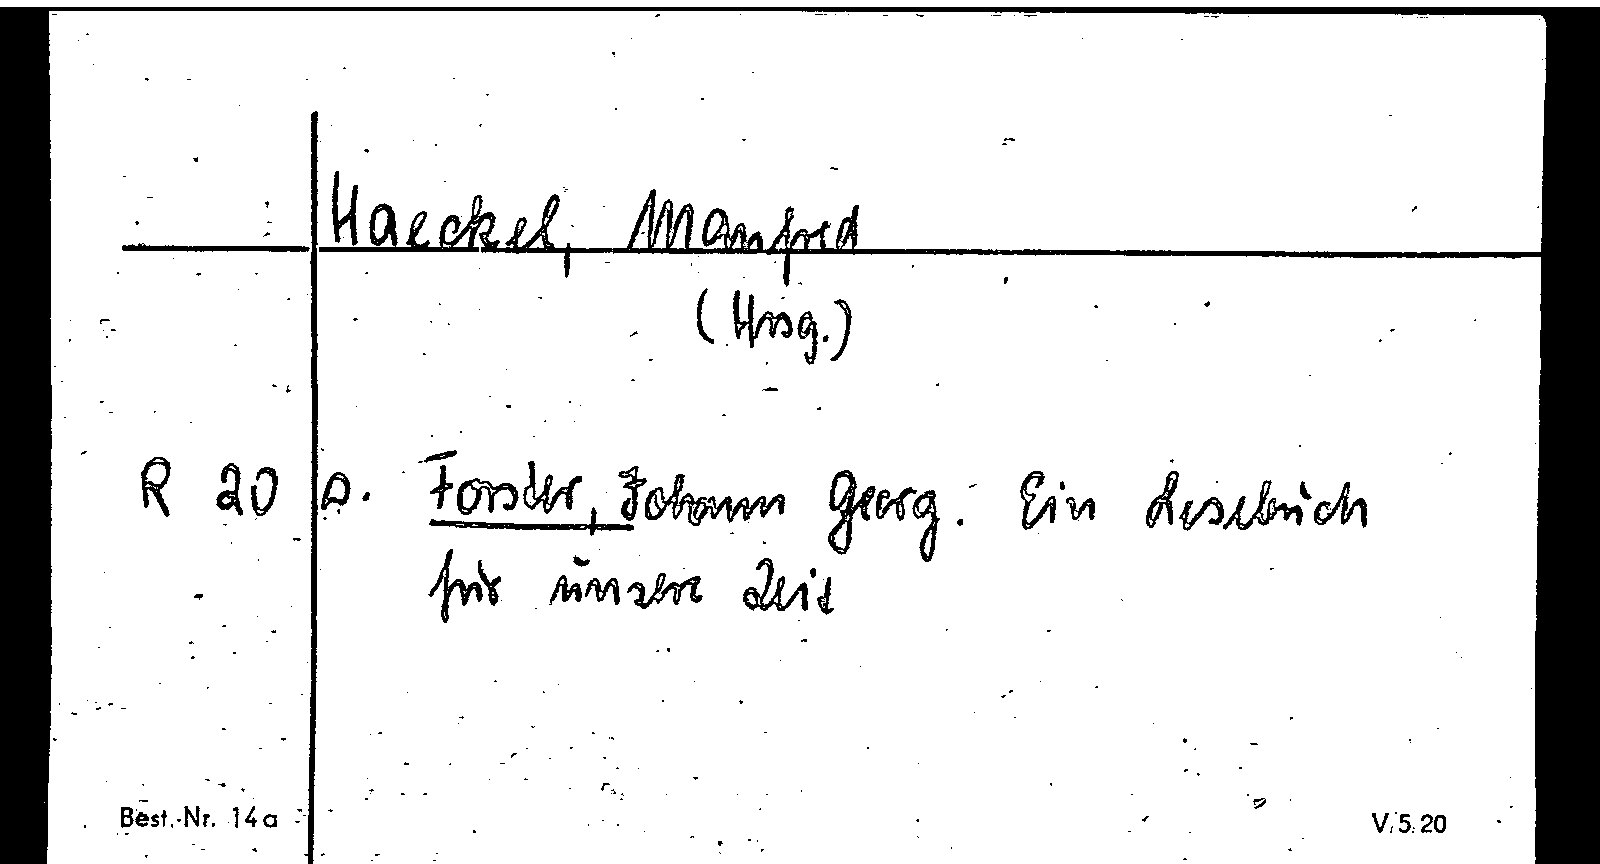 Haeckel, Manfred
(Hrsg.)
R 20 s. Forster, Johann Georg. Ein Lesebuch
für unsere Zeit
Best.-Nr. 14a V.5.20